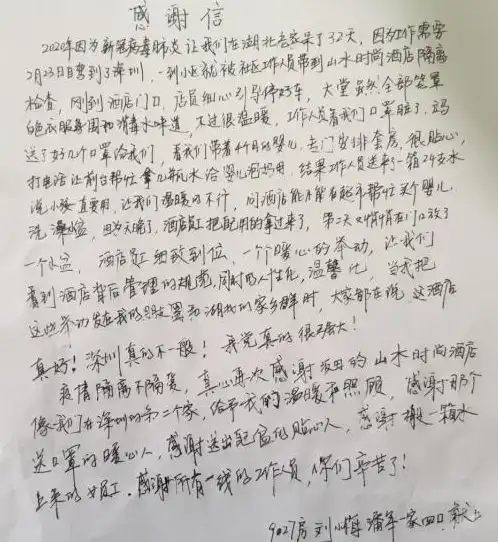 感谢信
2020年因为新冠病毒肺炎让我们在湖北老家呆了32天,因为工作需要
2月23日自驾到了深圳,一到小区就被社区工作人员带到山水时尚酒店隔离
检查,刚到酒店门口,店员细心引导停好车,大堂虽然全部笼罩
的衣服周围和消毒水味道,不过很温暖,工作人员看我们口罩脏了,马
送了好几个口罩给我们,看我们带着4个月的婴儿,专门安排套房,很贴心,
打电话让前台帮忙拿几瓶水给婴儿泡奶用,结果工作人员送来了一箱24支水
说小孩一直要用,让我们温暖的不行,问酒店能不能有超市帮忙买个婴儿
洗澡盆,因为天晚了,酒店员工把配用的拿过来了,第二天又悄悄在门口放了
一个水盆,酒店员工细致到位,一个个暖心的举动,让我们
看到酒店背后管理的规范,同时的人性化,温馨化,当我把
这些举动发在我的朋友圈和湖北的家乡群时,大家都在说,这酒店
真好!深圳真的不一般!我觉真的很强大!
疫情隔离不隔爱,真心再次感谢坂田的山水时尚酒店
像我们在深圳的第二个家,给予我的温暖和照顾,感谢那个
送口罩的暖心人,感谢送出配盆的贴心人,感谢搬一箱水
上来的女员工,感谢所有一线的工作人员,你们辛苦了!
9027房 刘小 潘军一家四口